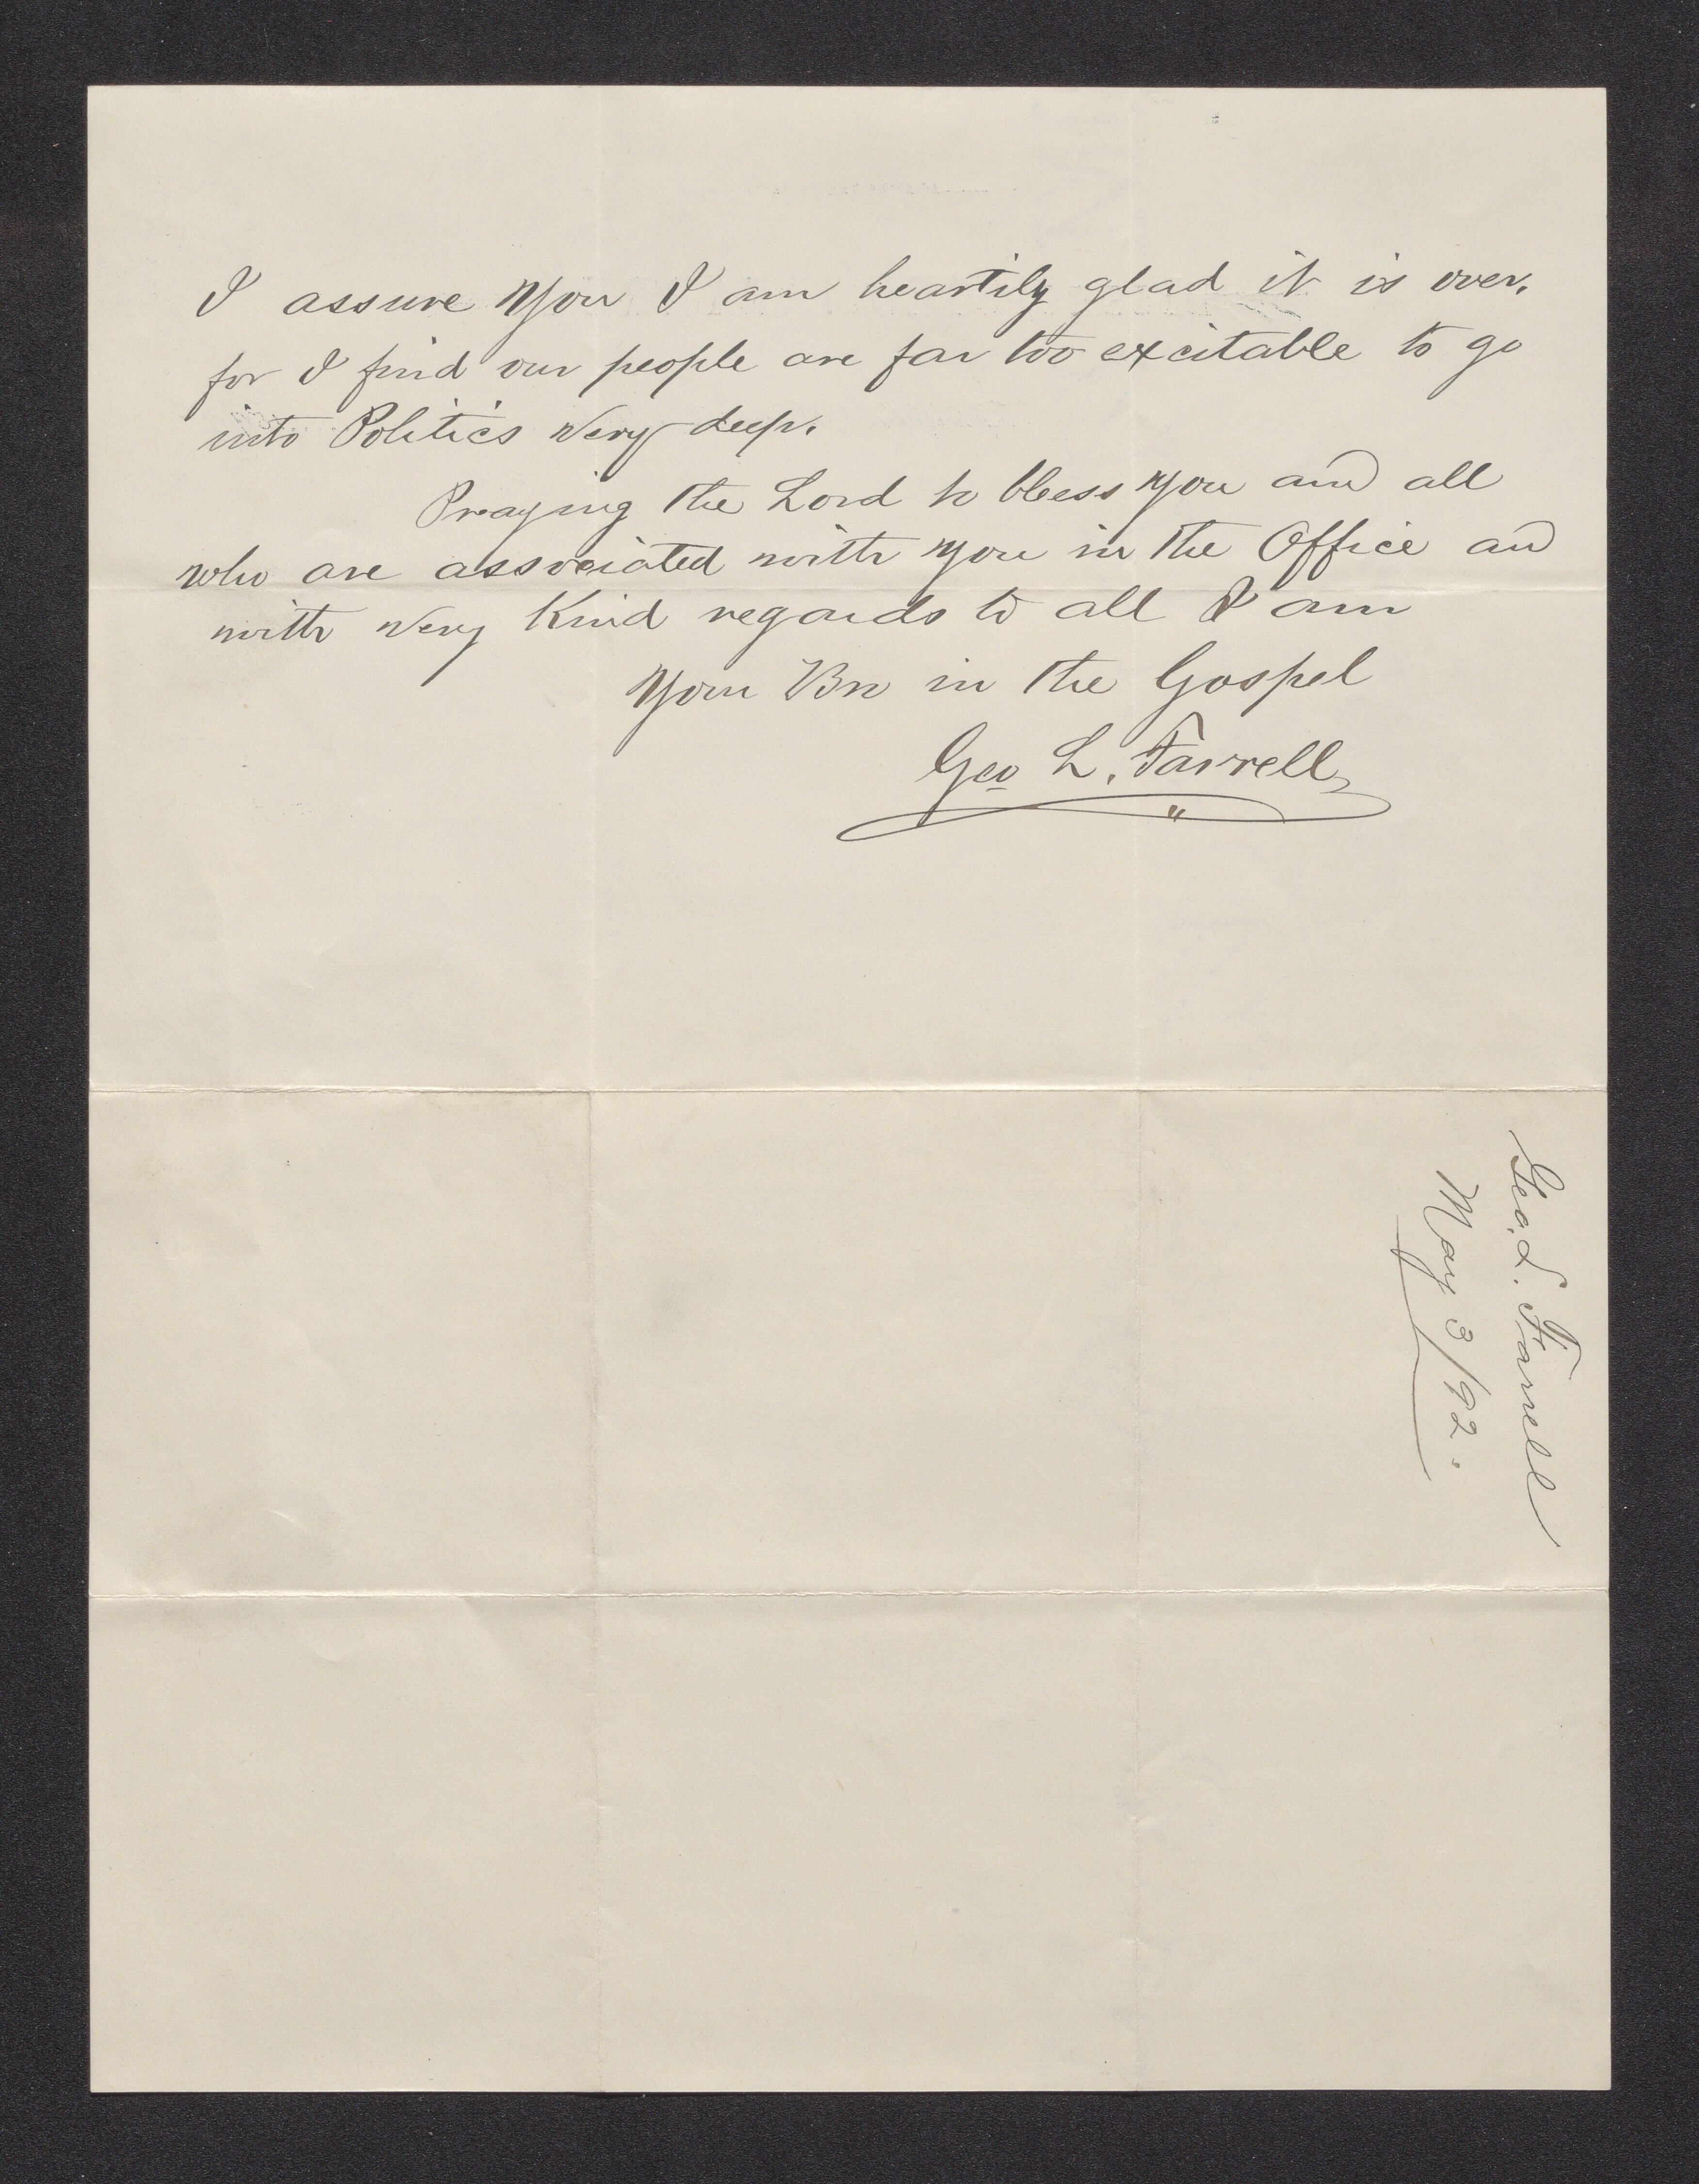 I assure you I am heartily glad it is over,
for I find our people are far too excitable to go
into Politics very deep.
Praying the Lord to bless you and all
who are associated with you in the Office and
with very Kind regards to all I am
Your Bro in the Gospel
Geo L. Farrell
Geo. L. Farrell
May 3/92.